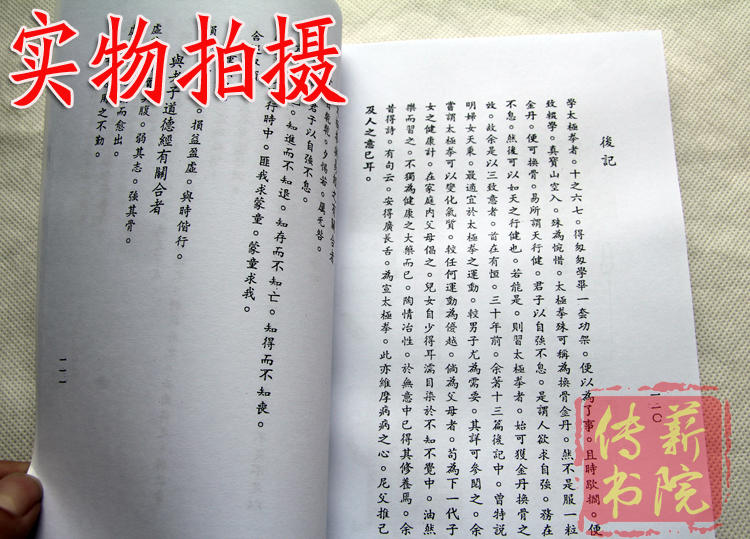 实物拍摄
後記
學太極拳者。十之六七。得匆匆學畢一套功架。便以為了事。且時歇擱。便
致輟學。真寶山空入。殊為惋惜。太極拳殊可稱為換骨金丹。然不是服一粒
金丹。便可換骨。易所謂天行健。君子以自強不息。是謂人欲求自強。務在
不息。然後可以如天之行健也。若能是。則習太極拳者。始可獲金丹換骨之
效。故余是以三致意者。首在有恒。三十年前。余著十三篇後記中。曾特說
明婦女天東。最適宜於太極拳之運動。較男子尤為需要。其詳可參閱之。余
嘗謂太極拳可以變化氣質。較任何運動為優越。倘為父母者。苟為下一代子
女之健康計。在家庭內父母倡之。兒女自少得耳濡目染於不知不覺中。油然
樂而習之。不獨為健康之大藥而已。陶情冶性。於無意中已得其修養焉。余
昔得詩。有句云。安得廣長舌。為宣太極拳。此亦維摩病病之心。尼父推己
及人之意已耳。
一一〇
有關合者
夕惕若。厲无咎。
君子以自強不息。
知進而不知退。知存而不知亡。知得而不知喪。
行時中。匪我求蒙童。蒙童求我。
損益盈虛。與時偕行。
與老子道德經有關合者
腹。弱其志。強其骨。
而愈出。
之不勤。
一一一
传薪书院